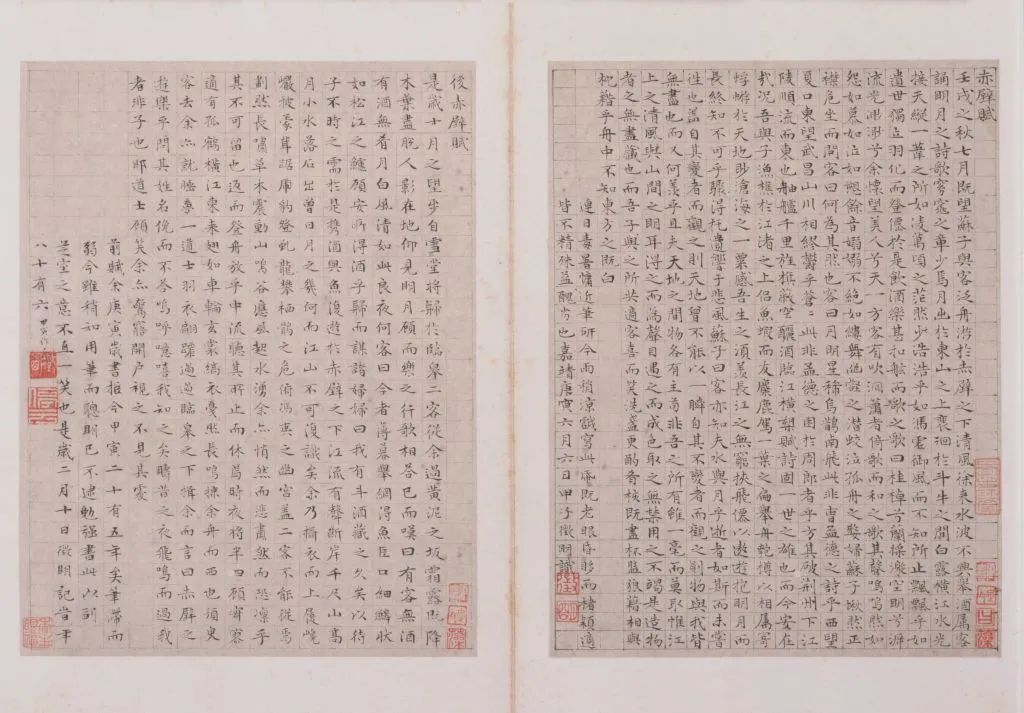 赤壁賦
壬戌之秋七月既望蘇子與客泛舟游於赤壁之下清風徐來水波不興舉酒屬客
誦明月之詩歌窈窕之章少焉月出於東山之上裵洄於斗牛之間白露橫江水光
接天縱一葦之所如凌萬頃之茫然浩浩乎如馮虛御風而不知所止飄飄乎如
遺世獨立羽化而登僊於是飲酒樂甚扣舷而歌之歌曰桂棹兮蘭槳擊空明兮泝
流光渺渺兮余懷望美人兮天一方客有吹洞簫者倚歌而和之其聲嗚嗚然如
怨如慕如泣如愬餘音嫋嫋不絕如縷舞幽壑之潛蛟泣孤舟之嫠婦蘇子愀然正
襟危坐而問客曰何為其然也客曰月明星稀烏鵲南飛此非曹孟德之詩乎西望
夏口東望武昌山川相繆鬱乎蒼〻此非孟德之困于周郎者乎方其破荊州下江
陵順流而東也舳艫千里旌旗蔽空釃酒臨江橫槊賦詩固一世之雄也而今安在
哉況吾與子漁樵於江渚之上侶魚蝦而友麋鹿駕一葉之扁舟舉匏樽以相屬寄
蜉蝣於天地眇滄海之一粟哀吾生之須臾羨長江之無窮挾飛僊以遨遊抱明月而
長終知不可乎驟得托遺響于悲風蘇子曰客亦知夫水與月乎逝者如斯而未嘗
往也蓋自其變者而觀之則天地曾不能以一瞬自其不變者而觀之則物與我皆
無盡也而又何羨乎且夫天地之間物各有主苟非吾之所有雖一毫而莫取惟江
上之清風與山間之明月耳得之而為聲目遇之而成色取之無禁用之不竭是造物
者之無盡藏也而吾子與之所共適客喜而笑洗盞更酌肴核既盡杯盤狼藉相與
枕藉乎舟中不知東方之既白
連日毒暑慵近筆研今雨稍涼戲寫此紙既老眼昏眵而楮穎適
皆不精殊益醜劣也嘉靖庚寅六月六日甲子徵明識
後赤壁賦
是歲十月之望步自雪堂將歸於臨皋二客從余過黃泥之坂霜露既降
木葉盡脫人影在地仰見明月顧而樂之行歌相答已而嘆曰有客無酒
有酒無肴月白風清如此良夜何客曰今者薄暮舉網得魚巨口細鱗狀
如松江之鱸顧安所得酒乎歸而謀諸婦婦曰我有斗酒藏之久矣以待
子不時之需於是携酒與魚復遊於赤壁之下江流有聲斷岸千尺山高
月小水落石出曾日月之幾何而江山不可復識矣余乃攝衣而上履巉
巖披蒙茸踞虎豹登虬龍攀栖鶻之危俯馮夷之幽宮蓋二客不能從焉
劃然長嘯草木震動山鳴谷應風起水湧余亦悄然而悲肅然而恐凛乎
其不可留也返而登舟放乎中流聽其所止而休焉時夜將半四顧寂寥
適有孤鶴橫江東來翅如車輪玄裳縞衣戛然長鳴掠余舟而西也須臾
客去余亦就睡夢一道士羽衣翩躚過臨皋之下揖余而言曰赤壁之
遊樂乎問其姓名俛而不答嗚呼噫嘻我知之矣疇昔之夜飛鳴而過我
者非子也耶道士顧笑余亦驚寤開戶視之不見其處
前賦余庚寅歲書距今甲寅二十有五年矣筆滯而
弱今雖稍知用筆而聰明已不逮勉强書此以副
芝室之意不直一笑也是歲二月十日徵明記時年
八十有六